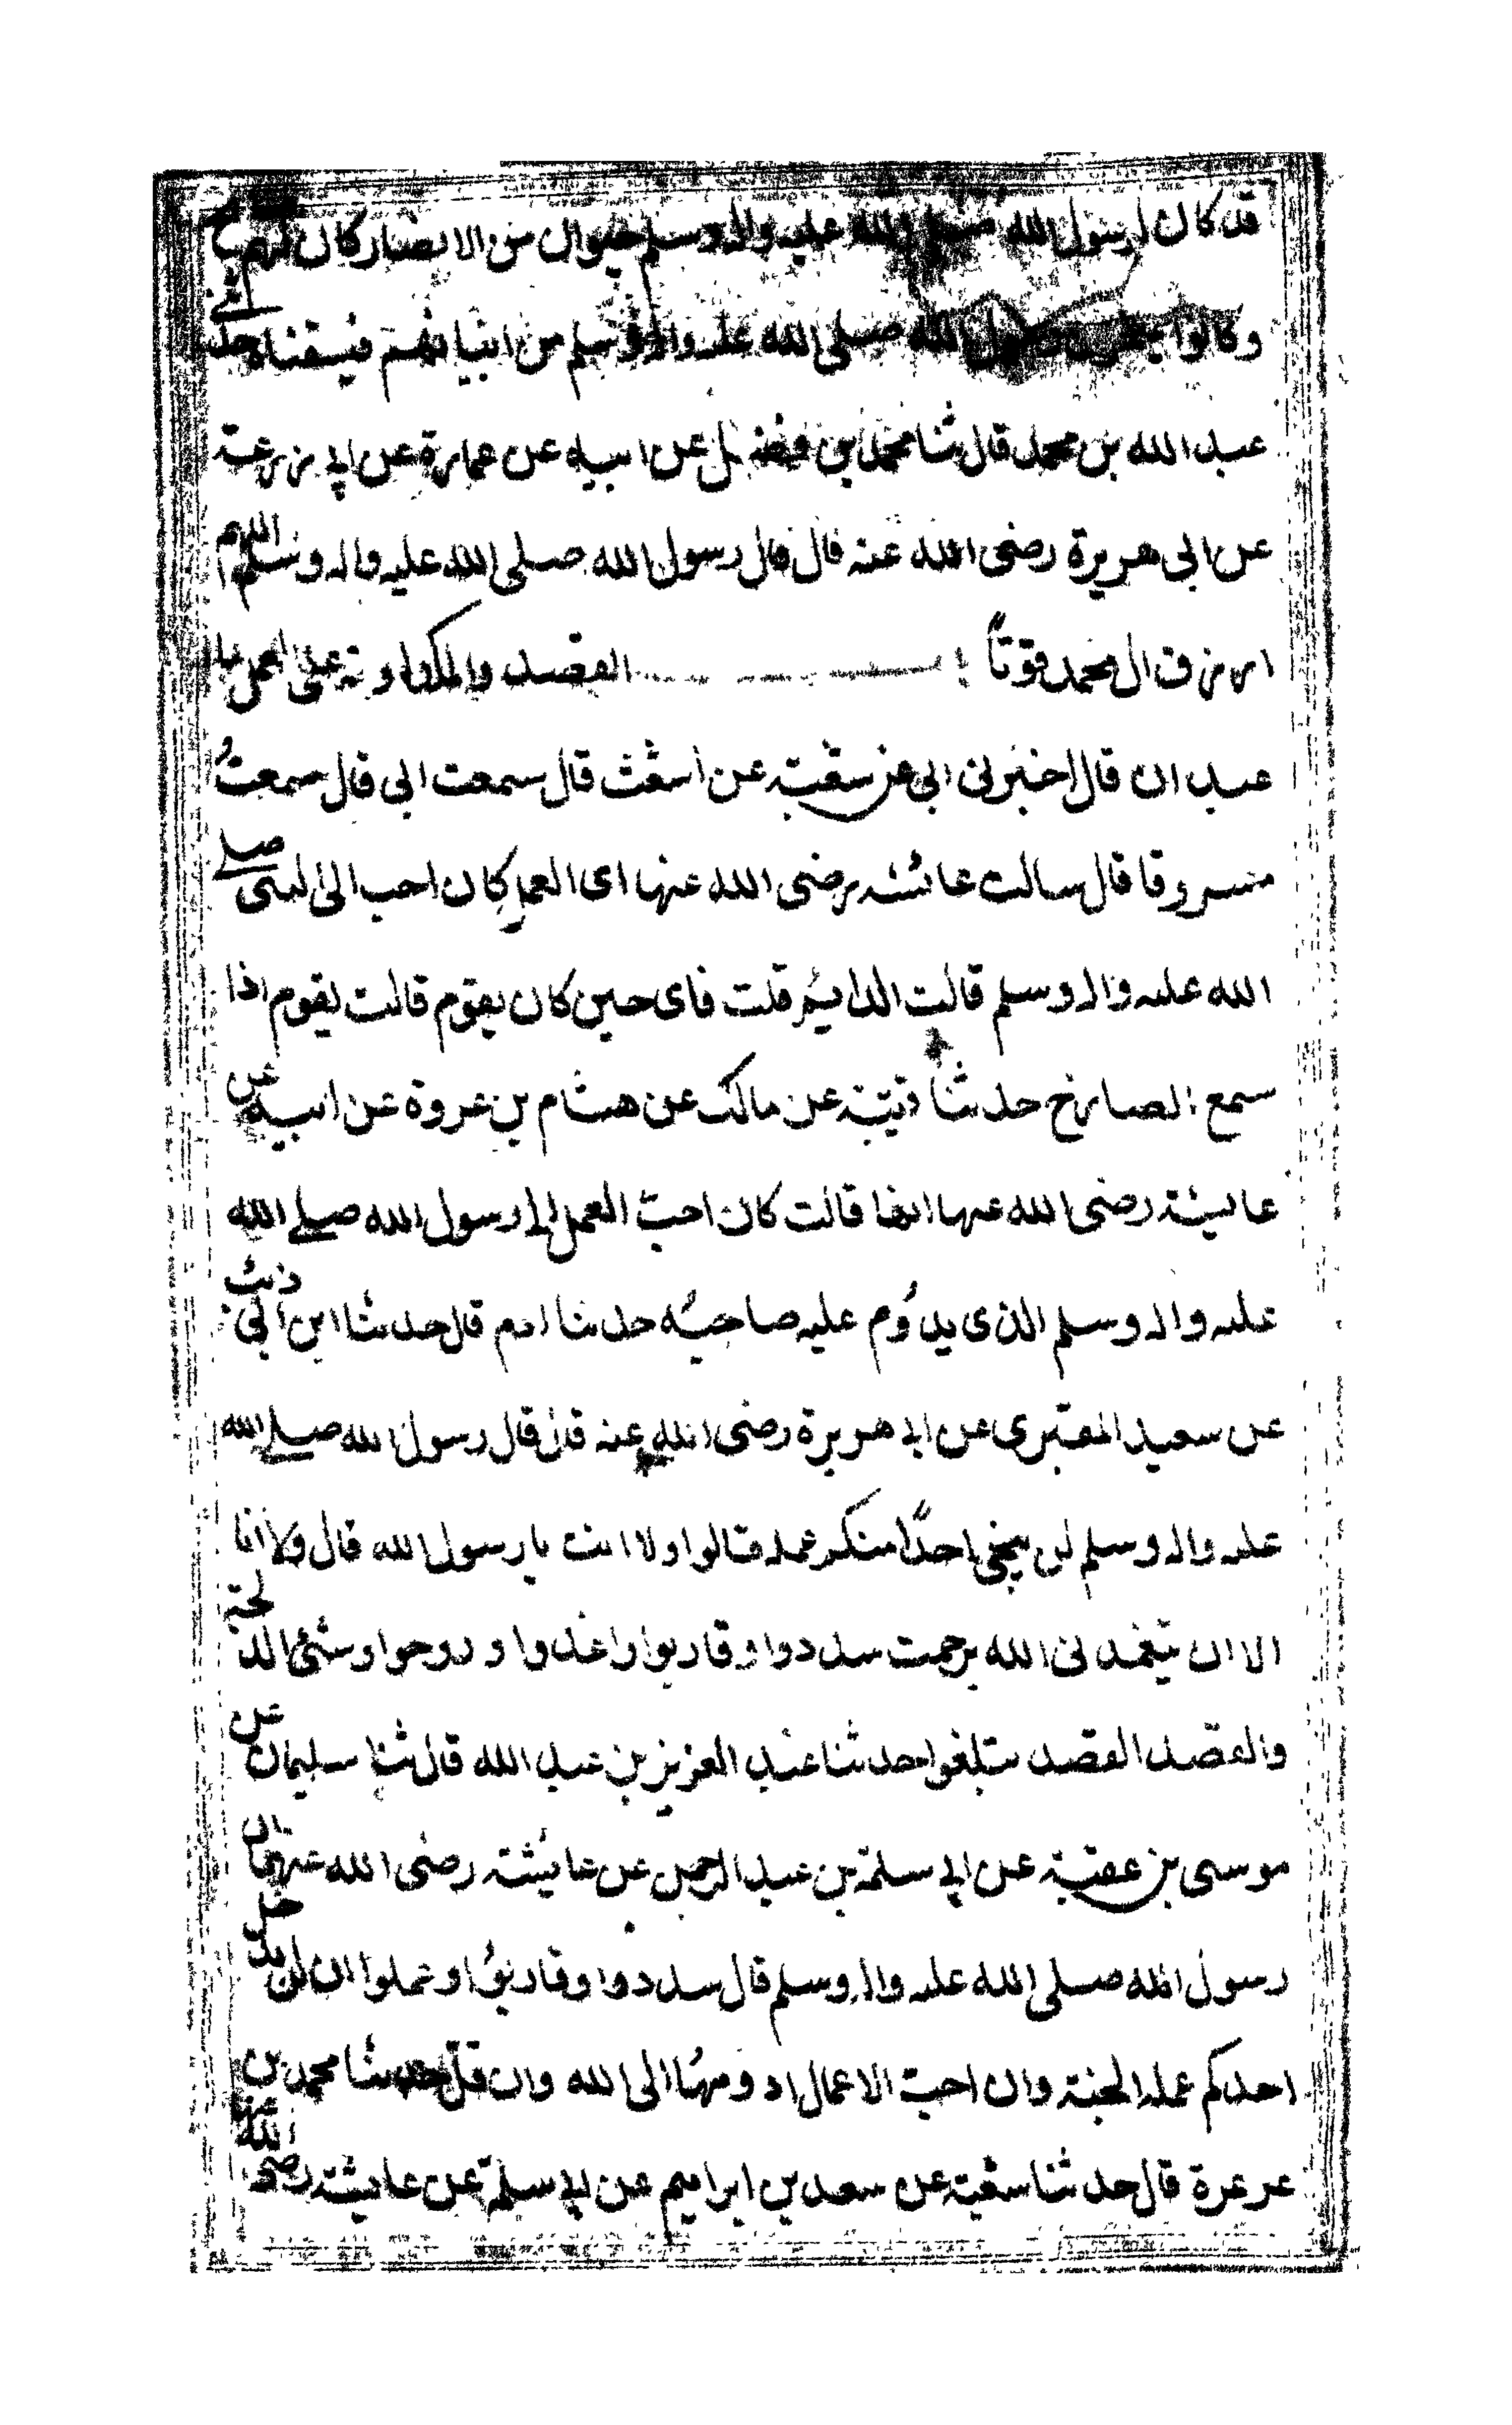 قد كان لرسول الله صلى الله عليه واله وسلم جيران من الانصار كان لهم منائح
وكانوا رسول الله صلى الله عليه واله وسلم من ابياتهم فيسقناه حدثنى
عبد الله بن محمد قال ثنا محمد بن فضيل عن ابيه عن عمارة عن ابى زرعة
عن ابى هريرة رضى الله عنه قال قال رسول الله صلى الله عليه واله وسلم اللهم
ارزق ال محمد قوتاً باب القصد والمداومة على العمل ثنا
عبدان قال اخبرنى ابى عن شعبة عن اشعث قال سمعت ابى قال سمعتُ
مسروقا قال سالت عائشة رضى الله عنها اى العمل كان احب الى النبى صلى
الله عليه واله وسلم قالت الدايم قلت فاى حين كان يقوم قالت يقوم اذا
سمع الصارخ حدثنا قتيبة عن مالك عن هشام بن عروة عن ابيه عن
عايشة رضى الله عنها انها قالت كان احبّ العمل الى رسول الله صلى الله
عليه واله وسلم الذى يدُوم عليه صاحبُه حدثنا ادم قال حدثنا ابن ابى ذئب
عن سعيد المقبرى عن ابى هريرة رضى الله عنه قال قال رسول الله صلى الله
عليه واله وسلم لن ينجى احدًا منكم عمله قالوا ولا انت يا رسول الله قال ولا انا
الا ان يتغمدنى الله برحمت سددوا وقاربوا واغدوا وروحوا وشئ الدلجة
والقصد القصد تبلغوا حدثنا عبد العزيز بن عبد الله قال ثنا سليمان عن
موسى بن عقبة عن ابى سلمة بن عبد الرحمن عن عايشة رضى الله عنها ان
رسول الله صلى الله عليه واله وسلم قال سددوا وقاربوُا وعملوا ان لن يدخل
احدكم عمله الجنة وان احبّ الاعمال ادومهُا الى الله وان قلّ حدثنا محمد بن
عرعرة قال حدثنا شعبة عن سعد بن ابراهيم عن ابى سلمة عن عايشة رضى الله عنها